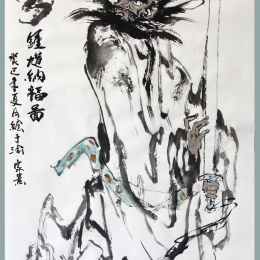 鍾馗納福圖
癸巳年夏月繪于